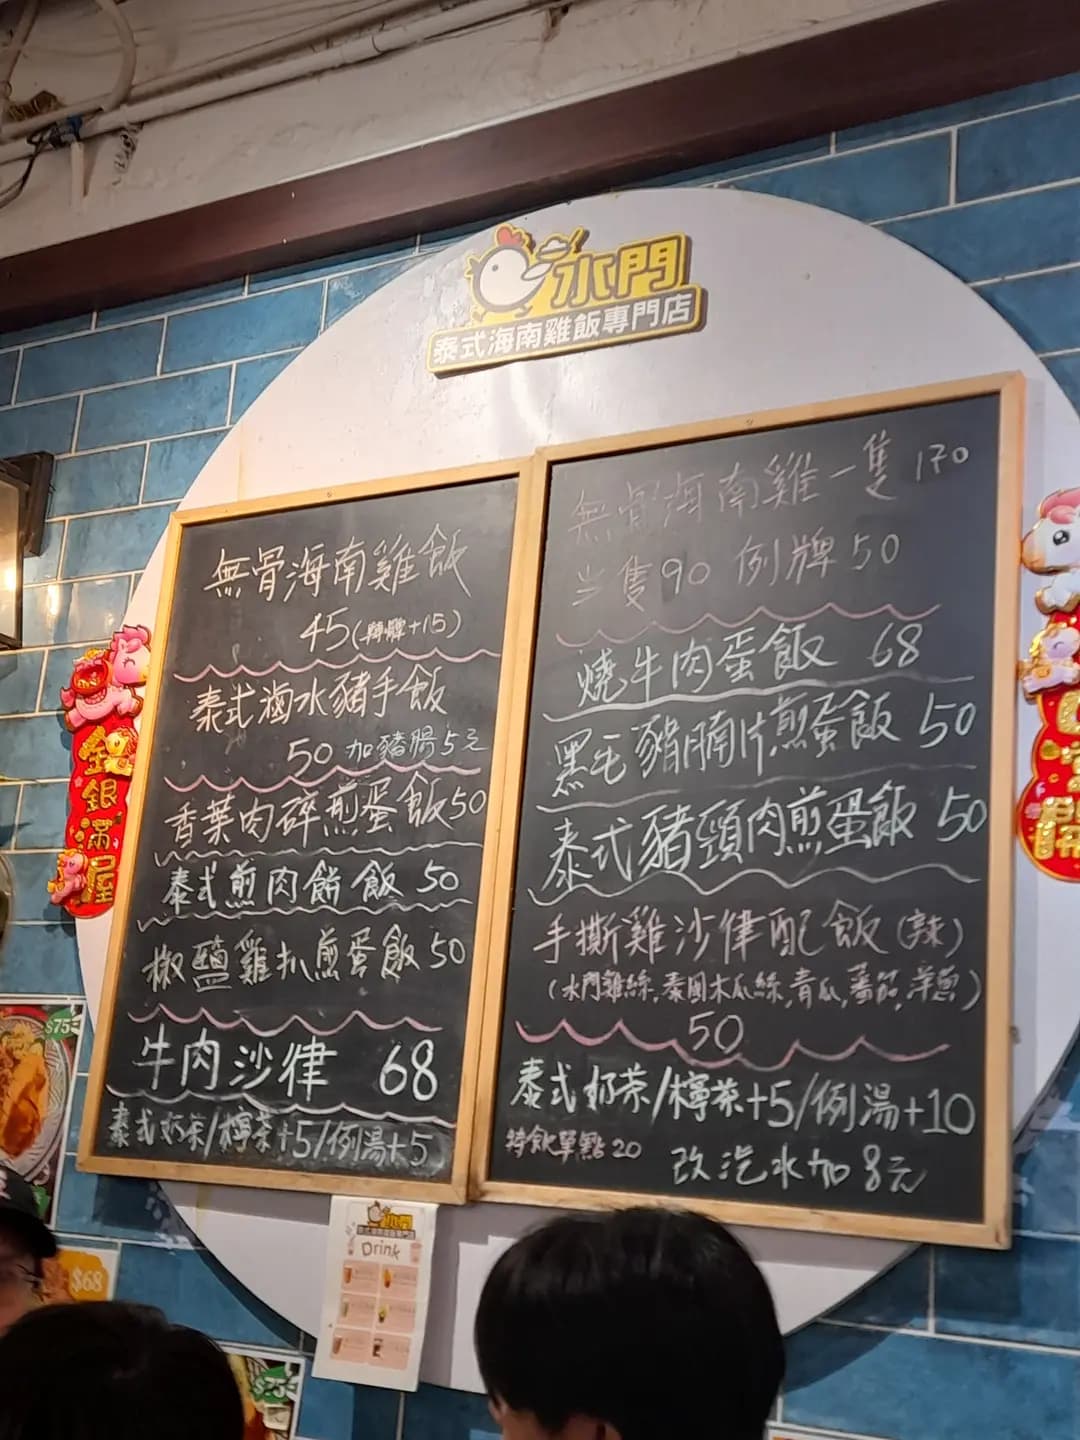 水門
泰式海南雞飯專門店
無骨海南雞飯
45(轉髀+15)
泰式滷水豬手飯
50 加豬腸5元
香葉肉碎煎蛋飯50
泰式煎肉餅飯 50
椒鹽雞扒煎蛋飯50
牛肉沙律 68
泰式奶茶/檸茶+5/例湯+5
無骨海南雞一隻 170
半隻90 例牌50
燒牛肉蛋飯 68
黑毛豬腩片煎蛋飯 50
泰式豬頸肉煎蛋飯 50
手撕雞沙律配飯(辣)
(水門雞絲,泰國木瓜絲,青瓜,蕃茄,洋蔥)
50
泰式奶茶/檸茶+5/例湯+10
特飲單點20 改汽水加8元
金銀滿屋
Drink
$75
$68